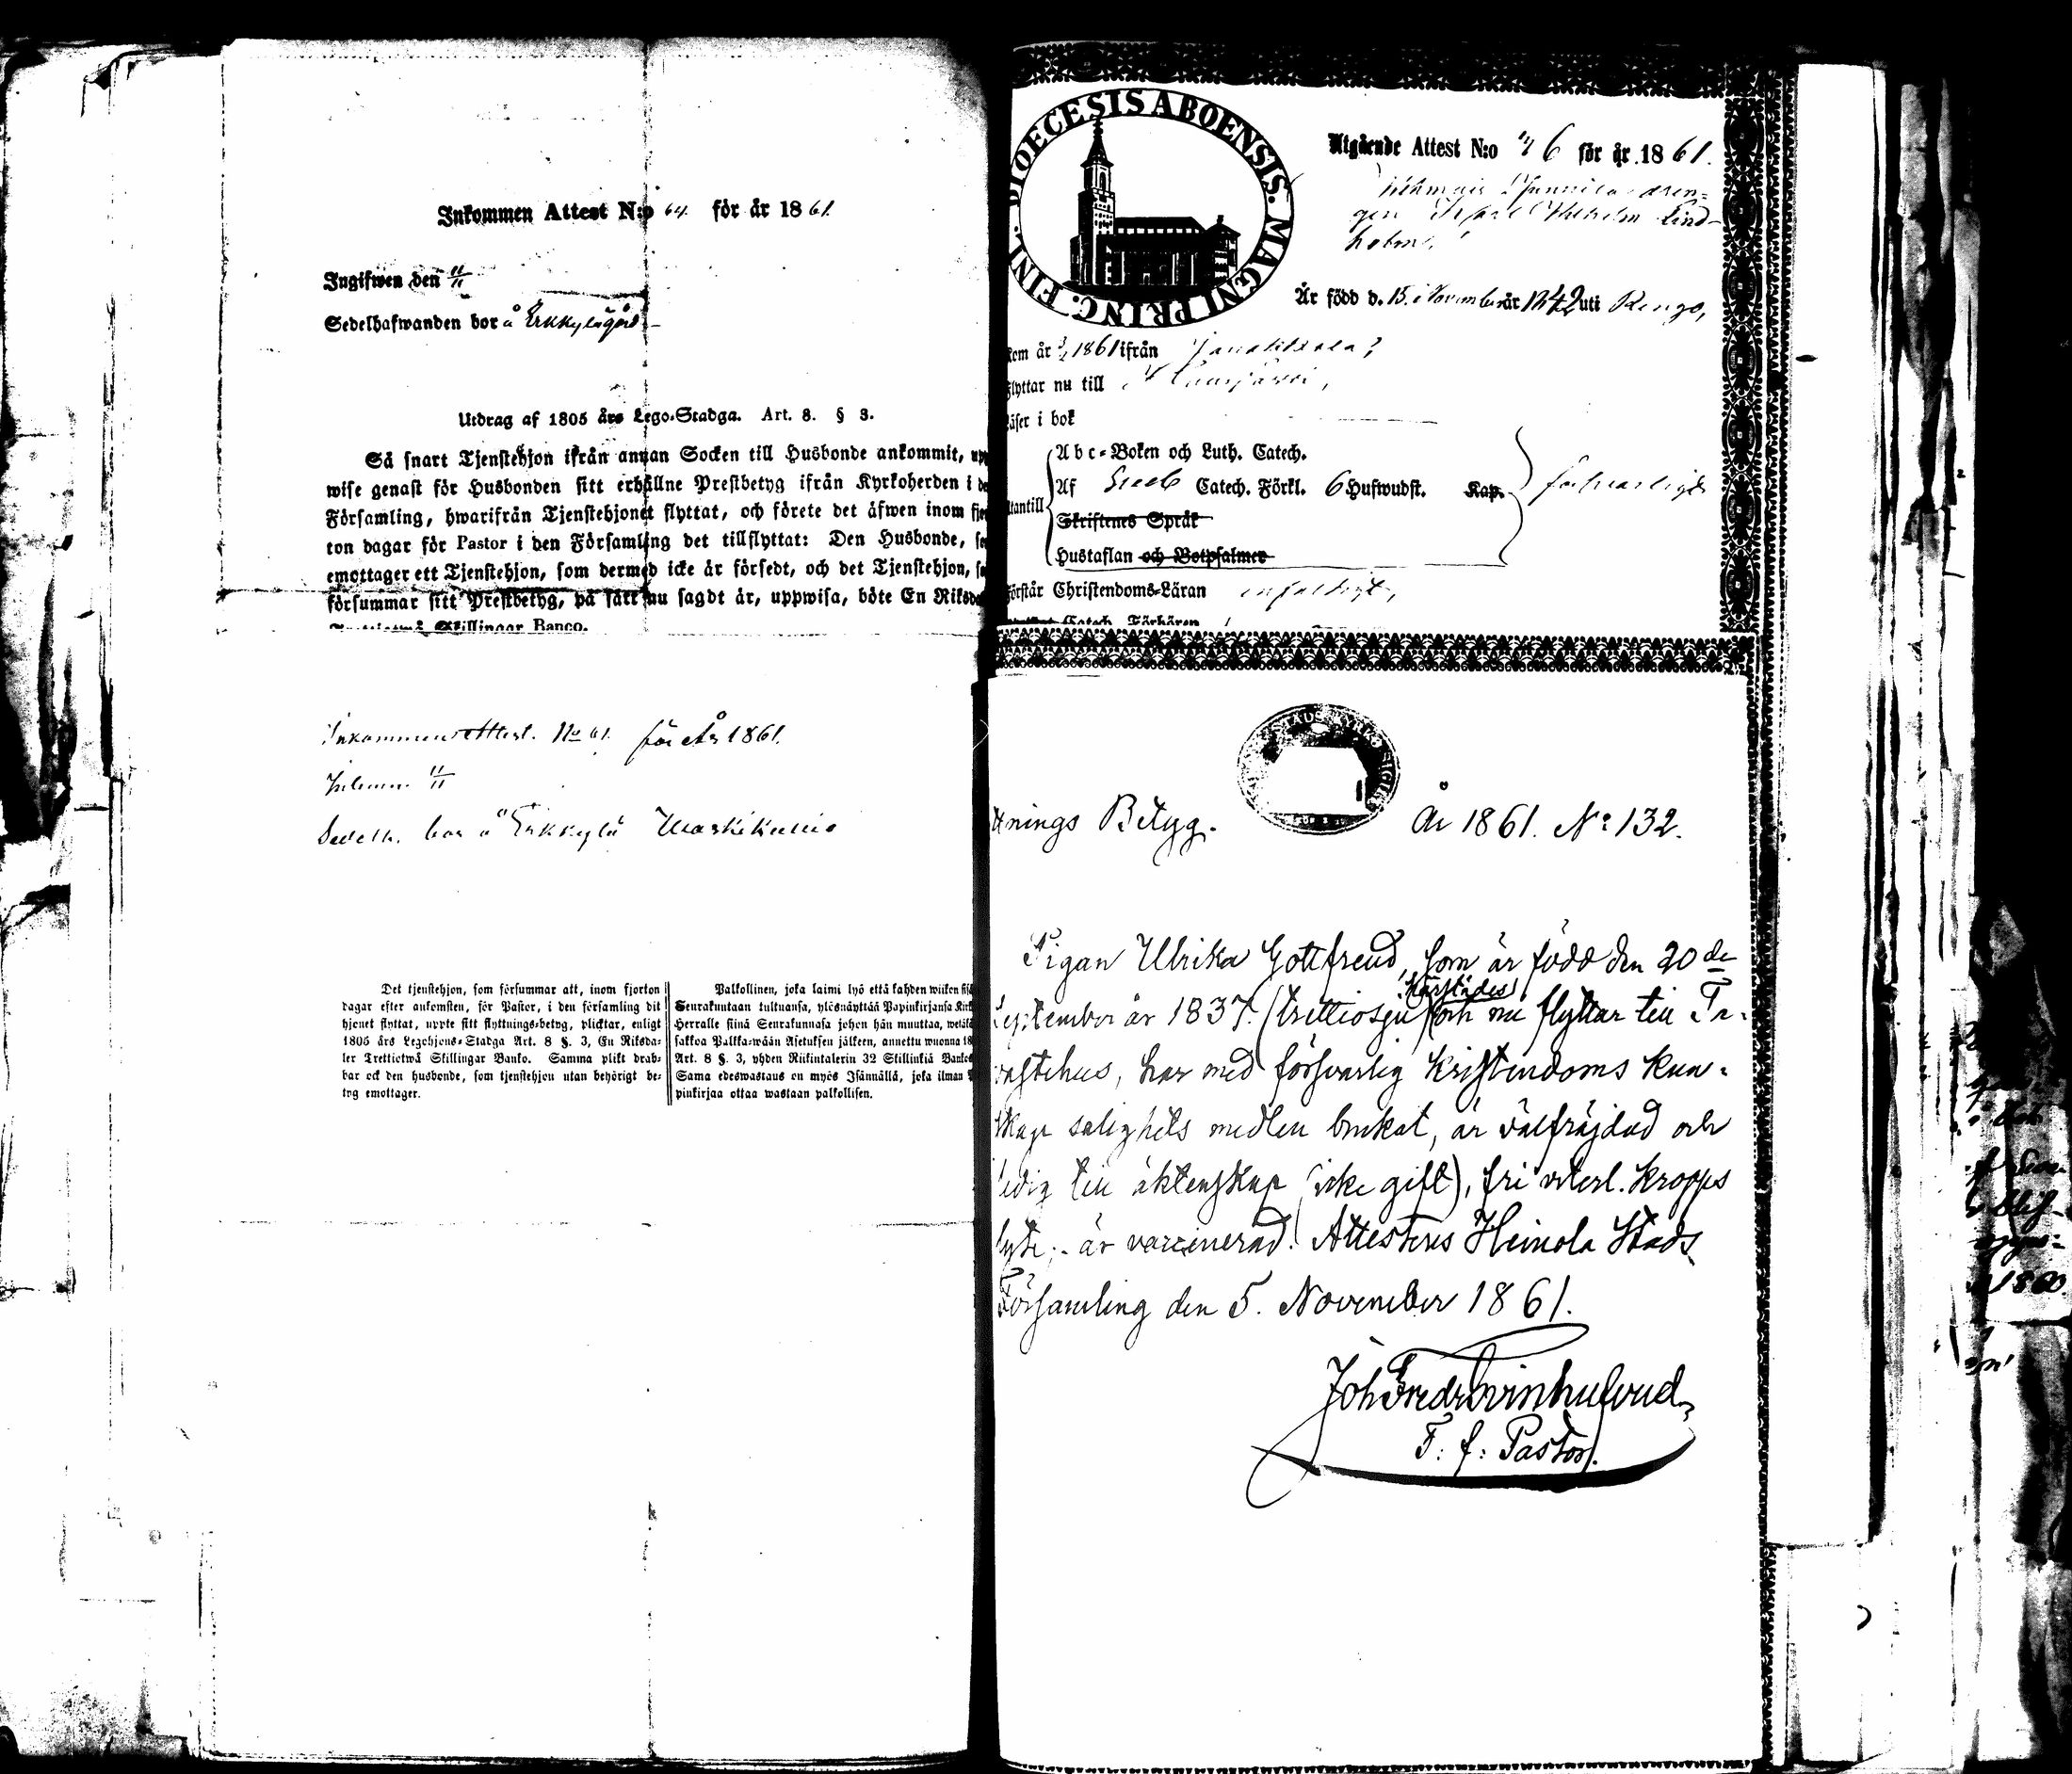 Inkommen Attest N:o 64. för år 1861.
Ingifwen den 11/11
Sedelhafwanden bor å Erkkylä gård
Utdrag af 1805 års Lego-Stadga. Art. 8. § 3.
Så snart Tjenstehjon ifrån annan Socken till Husbonde ankommit, upp
wise genast för Husbonden sitt erhållne Prestbetyg ifrån Kyrkoherden i de
Församling, hwarifrån Tjenstehjonet flyttat, och förete det äfwen inom fjor
ton dagar för Pastor i den Församling det tillflyttat: Den Husbonde, so
emottager ett Tjenstehjon, som dermed icke är försedt, och det Tjenstehjon, so
försummar sitt Prestbetyg, på sätt nu sagdt är, uppwisa, böte En Riksda
Skillingar Banco.
Inkommen Attest. No 61. för År 1861.
Inlemn. 11/11
Sedelh. bor å Erkkylä
Det tjenstehjon, som försummar att, inom fjorton
dagar efter ankomsten, för Pastor, i den församling dit
hjonet flyttat, uppte sitt flyttnings-betyg, plicktar, enligt
1805 års Legohjons-Stadga Art. 8 §. 3, En Riksda-
ler Trettiotwå Skillingar Banko. Samma plikt drab-
bar ock den husbonde, som tjenstehjon utan behörigt be-
tyg emottager.
Palkollinen, joka laimi lyö että kahden wiikon sisä
Seurakuntaan tultuansa, ylösnäyttää Papinkirjansa Kirk
Herralle siinä Seurakunnasa johon hän muuttaa, wetää
sakkoa Palkka-wään Asetuksen jälkeen, annettu wuonna 18
Art. 8 §. 3, yhden Riikintalerin 32 Skillinkiä Banko
Sama edeswastaus on myös Isännällä, joka ilman
pinkirjaa ottaa wastaan palkollisen.
DIOECESIS ABOENSIS. MAGNI PRINC. FINL.
Utgående Attest N:o 46 för år 1861.
Lind-
holm,
Är född d. 15. November år 1842 uti Rengo,
kom år 1861 ifrån Janakkala,
Flyttar nu till Hausjärvi,
Läser i bok
Abc-Boken och Luth. Catech.
Utantill
Af Catech. Förkl. 6 Hufwudst. Kap. försvarligt
Skriftenes Språk
Hustaflan och Botpsalmer
Förstår Christendoms-Läran enfaldigt,
Catech. Förhören
STADS KYRKO SIGILL
ttnings Betyg. År 1861. No 132.
Pigan Ulrika Gottfreud, som är född den 20de
härstädes
September år 1837. (trettiosju) och nu flyttar till Ta-
vastehus, har med försvarlig kristendoms kun-
skap salighets medlen brukat, är välfräjdad och
ledig till äktenskap (icke gift), fri veterl. kropps
lyte; - är vaccinerad. Attesteras Heinola Stads
Församling den 5. November 1861.
Joh Fredr Svinhufvud
T: f: Pastor.
1860